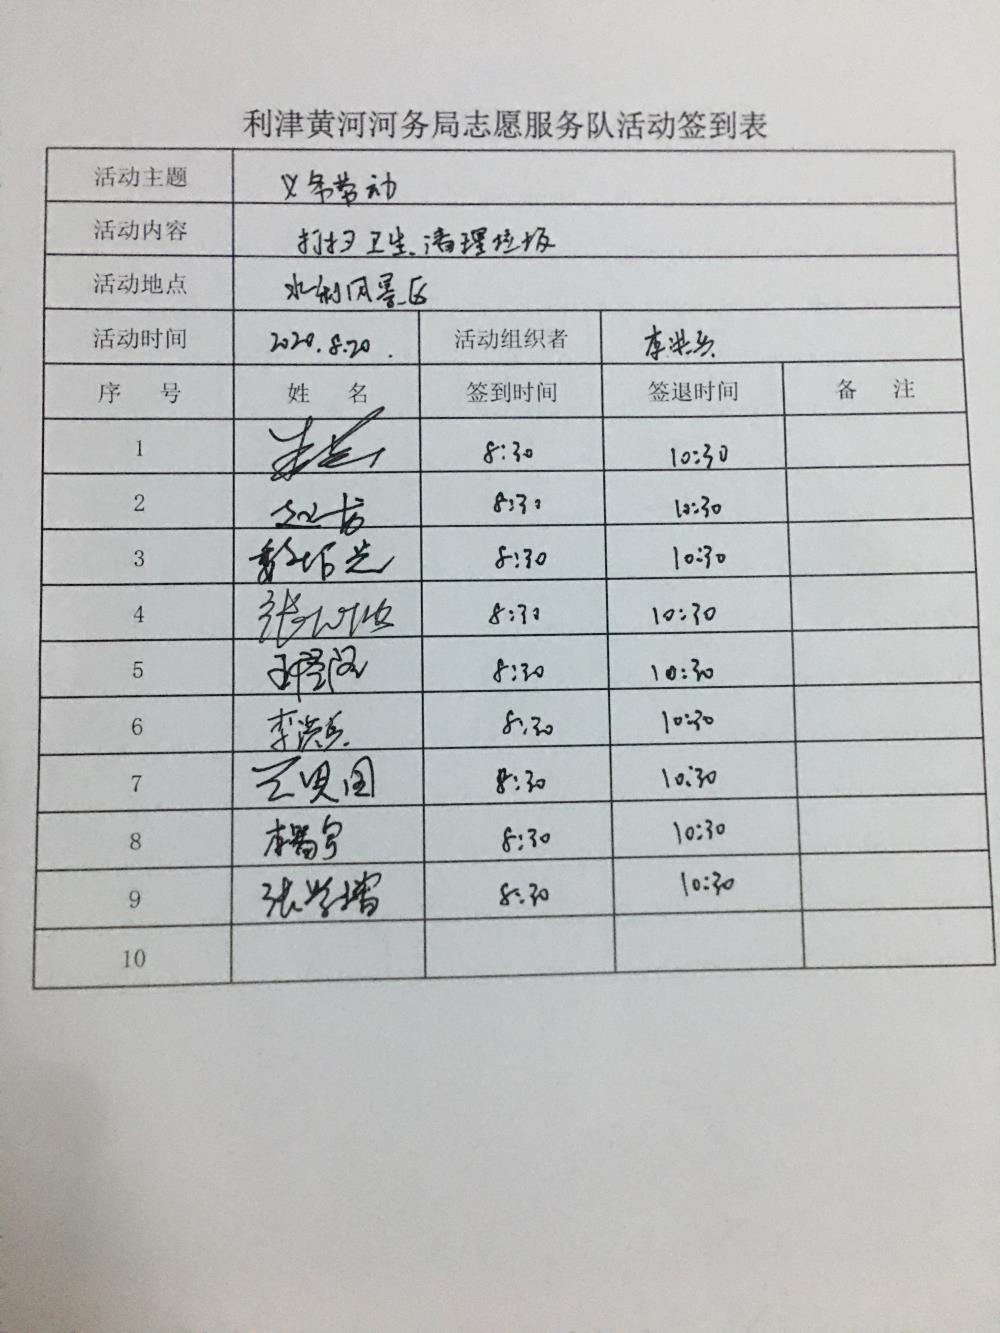 利津黄河河务局志愿服务队活动签到表
活动主题 义务劳动
活动内容 打扫卫生、清理垃圾
活动地点 水利风景区
活动时间 2020.8.20. 活动组织者 李洪兵
序 号 姓 名 签到时间 签退时间 备 注
1 8:30 10:30
2 8:30 10:30
3 8:30 10:30
4 8:30 10:30
5 8:30 10:30
6 李洪兵 8:30 10:30
7 8:30 10:30
8 8:30 10:30
9 8:30 10:30
10